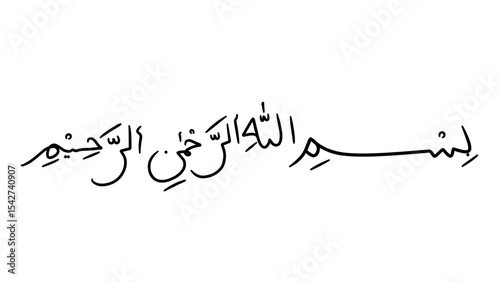 بِسْمِ اللّٰهِ الرَّحْمٰنِ الرَّحِيْمِ
Adobe Stock | #1542740907